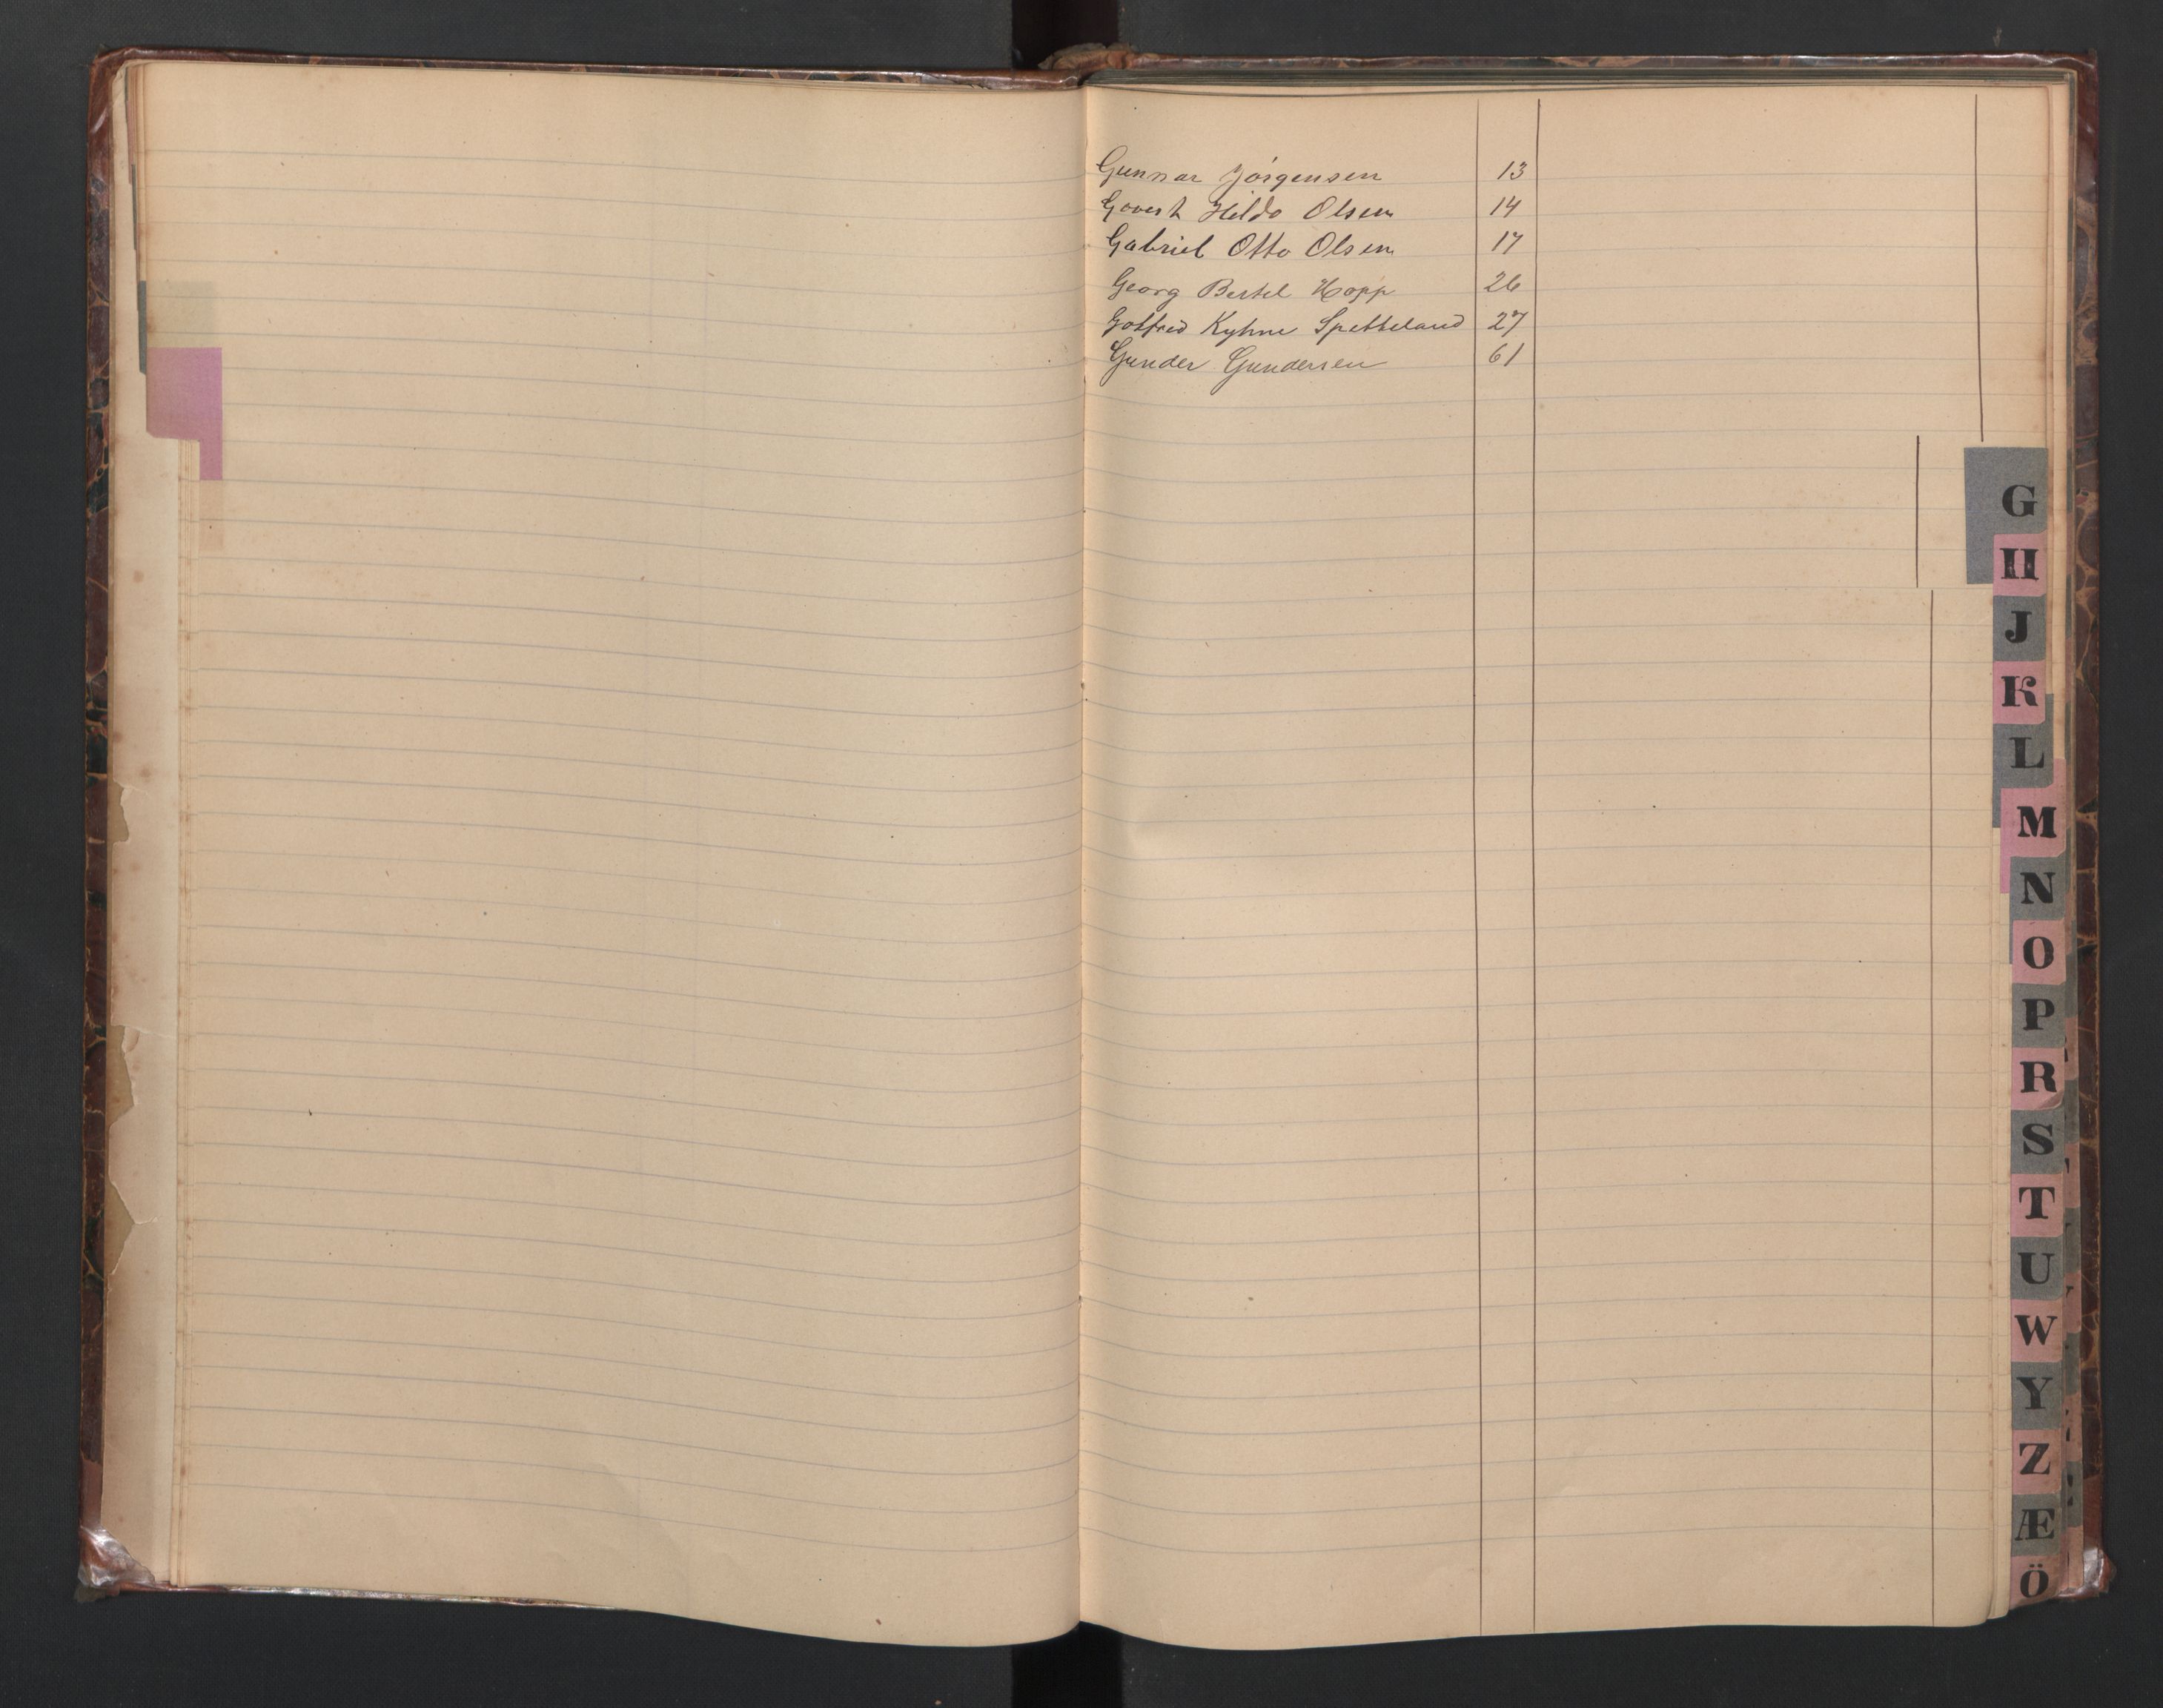 Gunnar Jörgensen 13
Govert Hildo Olsen 14
Gabriel Otto Olsen 17
Georg Bertel Hopp 26
Gotfred Kyhne Spetteland 27
Gunder Gundersen 61
G
H
J
K
L
M
N
O
P
R
S
T
U
W
Y
Z
Æ
Ö